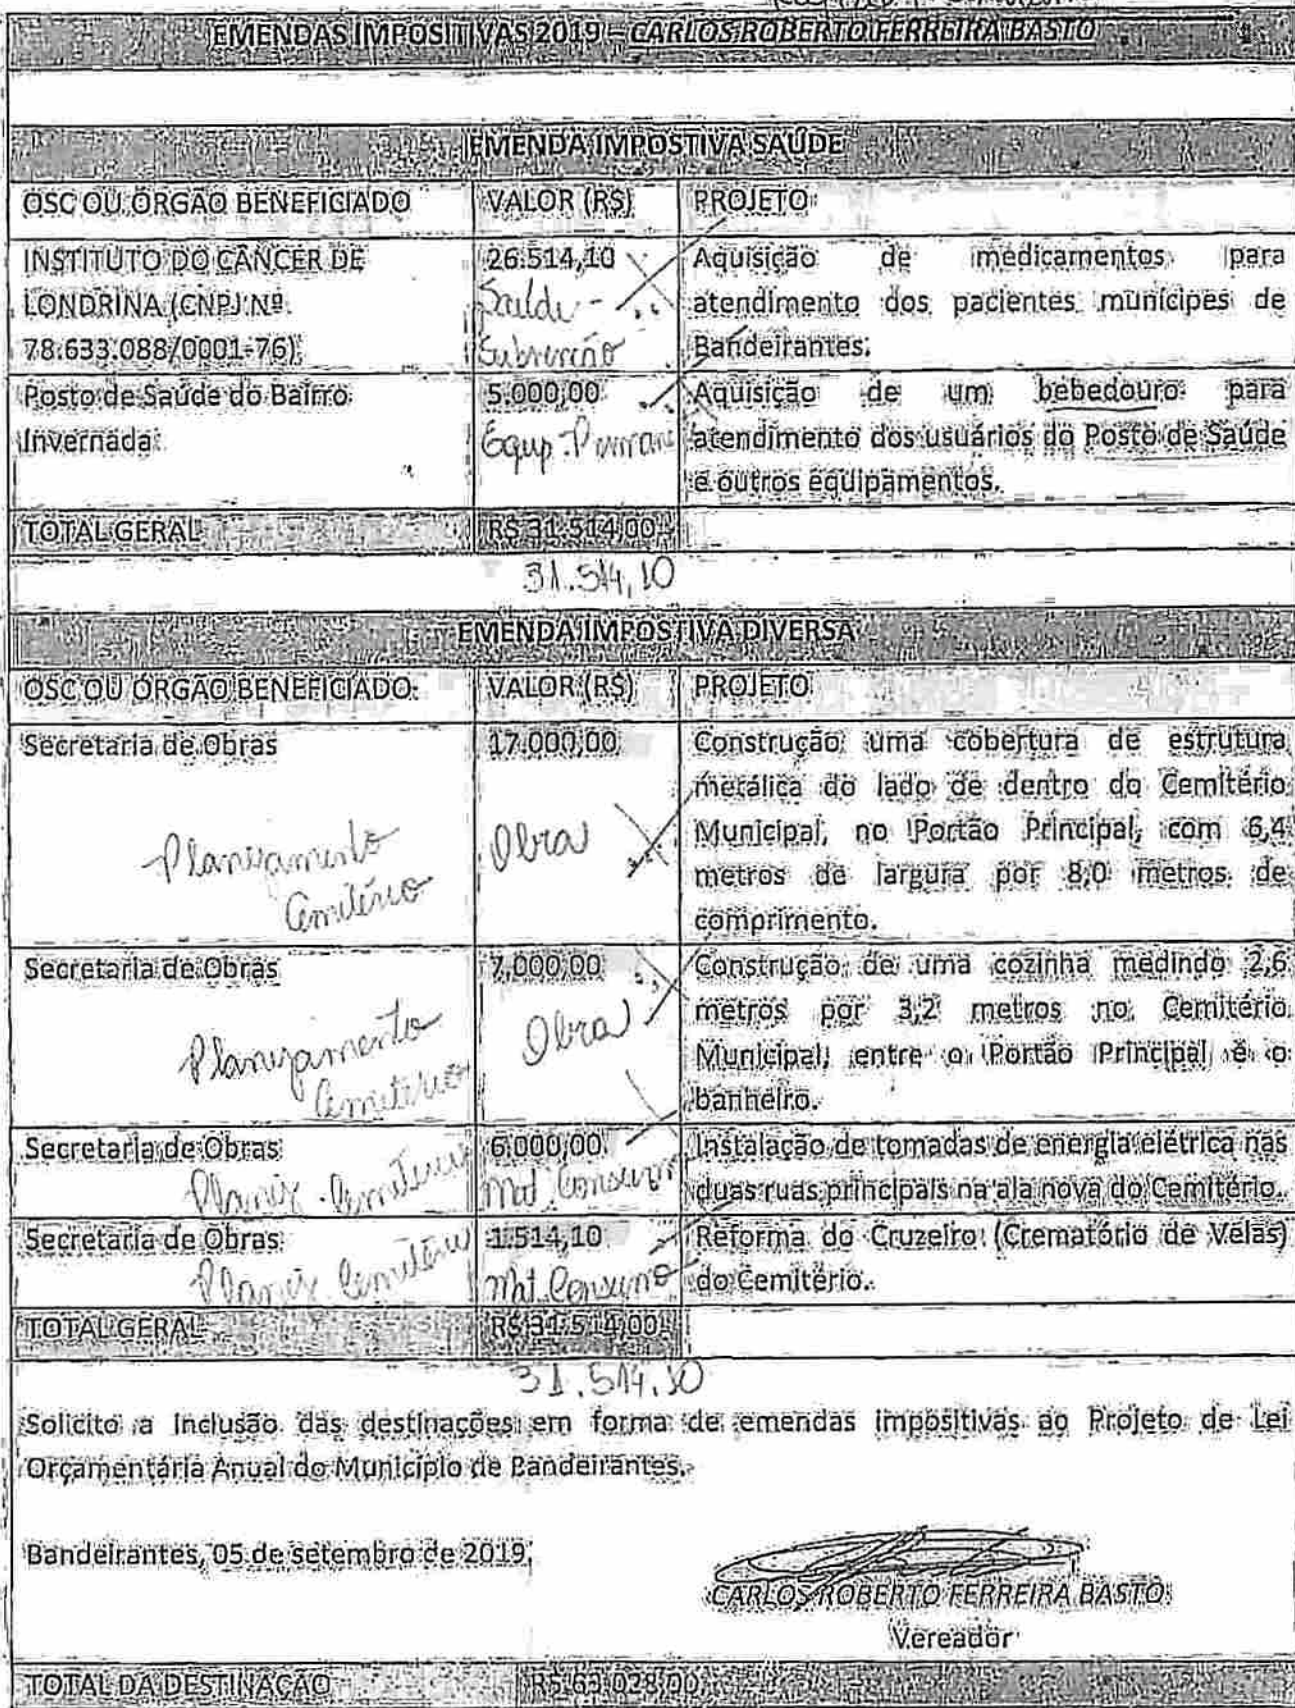 EMENDAS IMPOSITIVAS 2019 – CARLOS ROBERTO FERREIRA BASTO
EMENDA IMPOSTIVA SAÚDE
OSC OU ÓRGÃO BENEFICIADO VALOR (R$) PROJETO
INSTITUTO DO CÂNCER DE LONDRINA (CNPJ Nº 78.633.088/0001-76)
26.514,10
Saúde -
Subvenção
Aquisição de medicamentos para
atendimento dos pacientes munícipes de
Bandeirantes.
Posto de Saúde do Bairro
Invernada
5.000,00
Equip.
Aquisição de um bebedouro para
atendimento dos usuários do Posto de Saúde
e outros equipamentos.
TOTAL GERAL R$ 31.514,00
31.514,10
EMENDA IMPOSTIVA DIVERSA
OSC OU ÓRGÃO BENEFICIADO VALOR (R$) PROJETO
Secretaria de Obras
Planejamento
Cemitério
17.000,00
Obra
Construção uma cobertura de estrutura
metálica do lado de dentro do Cemitério
Municipal, no Portão Principal, com 6,4
metros de largura por 8,0 metros de
comprimento.
Secretaria de Obras
Planejamento
Cemitério
7.000,00
Obra
Construção de uma cozinha medindo 2,6
metros por 3,2 metros no Cemitério
Municipal, entre o Portão Principal e o
banheiro.
Secretaria de Obras
Planej. Cemitério
6.000,00
Mat. Consumo
Instalação de tomadas de energia elétrica nas
duas ruas principais na ala nova do Cemitério.
Secretaria de Obras
Planej. Cemitério
1.514,10
Mat. Consumo
Reforma do Cruzeiro (Crematório de Velas)
do Cemitério.
TOTAL GERAL R$ 31.514,00
31.514,10
Solicito a inclusão das destinações em forma de emendas impositivas ao Projeto de Lei
Orçamentária Anual do Município de Bandeirantes.
Bandeirantes, 05 de setembro de 2019.
CARLOS ROBERTO FERREIRA BASTO
Vereador
TOTAL DA DESTINAÇÃO R$ 63.028,00